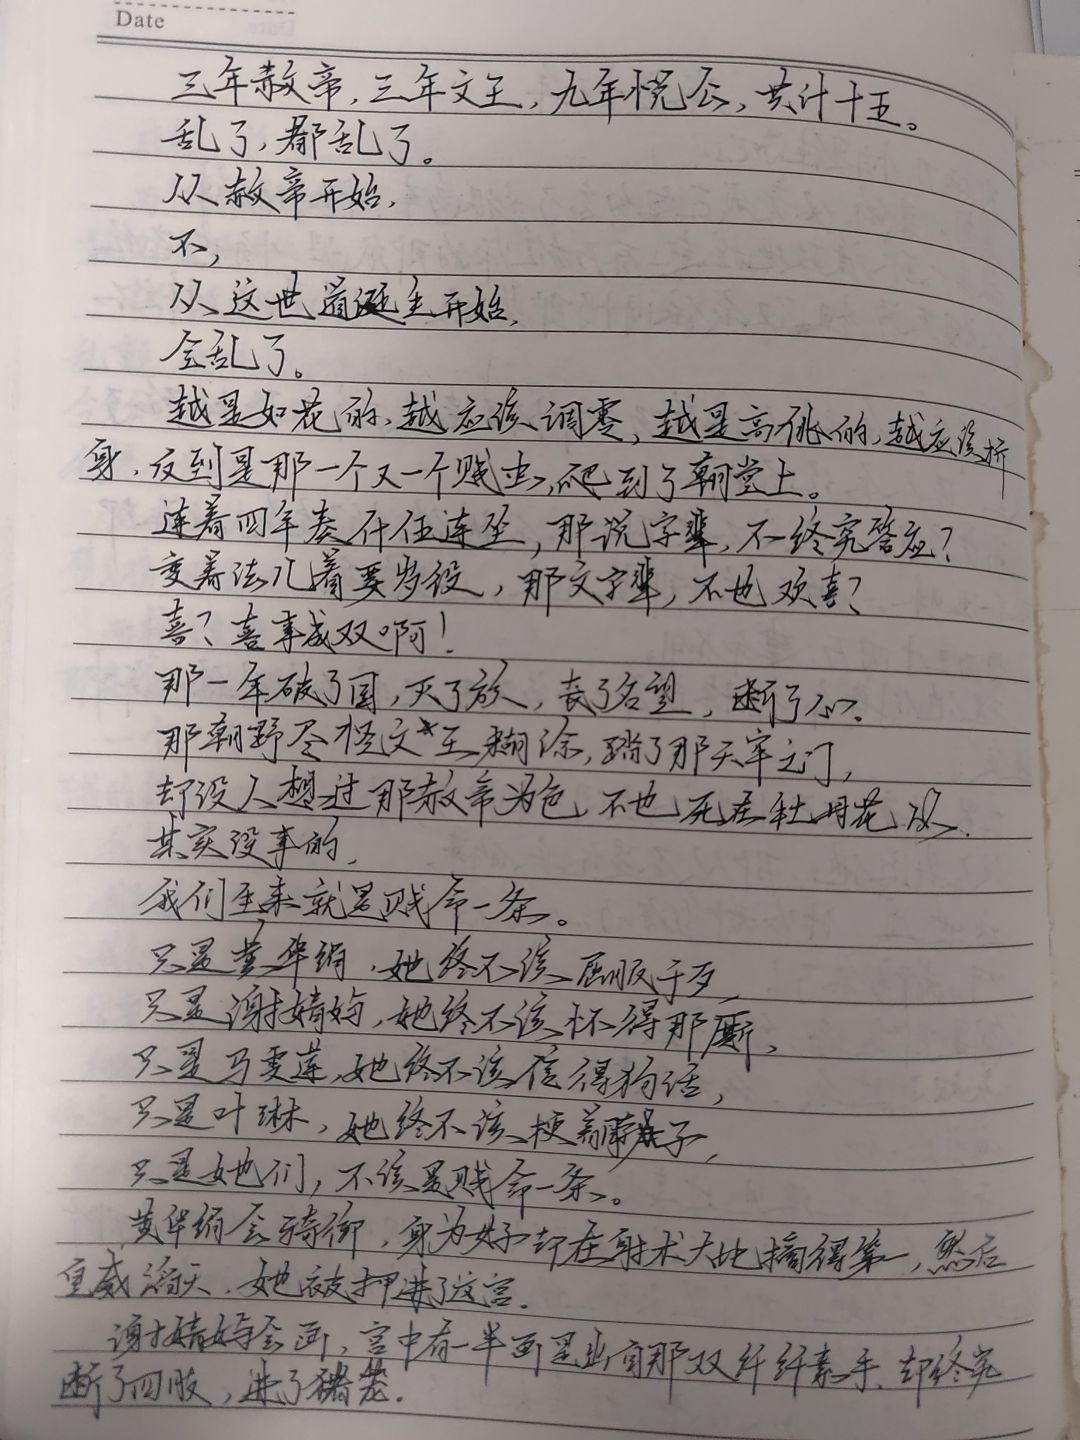 Date
三年赦帝，三年文王，九年悦公，共计十五。
乱了，都乱了。
从赦帝开始，
不，
从这世道诞生开始，
全乱了。
越是如花的，越应该凋零，越是高挑的，越应该折
身，反到是那一个又一个贱虫，爬到了朝堂上。
连着四年奏什伍连坐，那说字辈，不终究答应？
变着法儿着要岁役，那文字辈，不也欢喜？
喜？喜事成双啊！
那一年破了国，灭了族，丧了名望，断了心。
那朝野尽怪文王糊涂，踏了那天牢之门，
却没人想过那赦帝为色，不也死在牡丹花下。
其实没事的，
我们生来就是贱命一条。
只是黄华绢，她终不该屈服于歹，
只是谢婧妤，她终不该怀得那厮，
只是马雯莲，她终不该信得狗话，
只是叶琳，她终不该梗着脖子，
只是她们，不该是贱命一条。
黄华绢会骑御，身为女子却在射术大比摘得第一，然后
皇威滔天，她被押进了这宫。
谢婧妤会画，宫中有一半画是出自那双纤纤素手，却终究
断了四肢，进了猪笼。